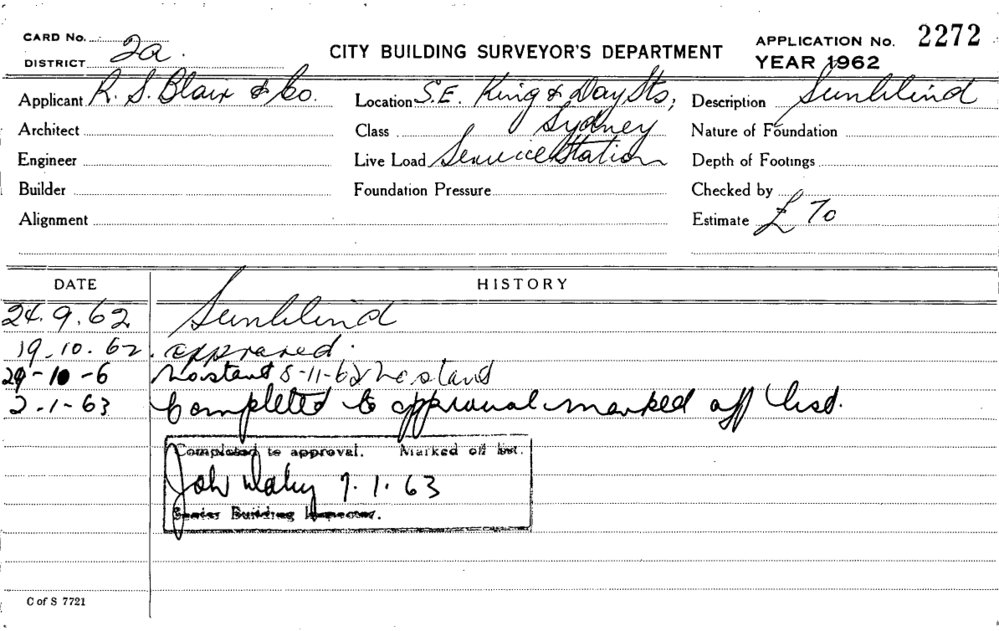 CARD No.
DISTRICT 2a.
CITY BUILDING SURVEYOR'S DEPARTMENT
APPLICATION No. 2272
YEAR 1962
Applicant R. S. Blair & Co.
Location S.E. King & Day Sts,
Description Sunblind
Architect
Class Sydney
Nature of Foundation
Engineer
Live Load Service Station
Depth of Footings
Builder
Foundation Pressure
Checked by
Alignment
Estimate £ 70
DATE HISTORY
24.9.62 Sunblind
19.10.62. approved.
29-10-6 no start 8-11-62 no start
2-1-63 Completed to approval marked off list.
Completed to approval. Marked off list.
John 7.1.63
Senior Building Inspector.
C of S 7721